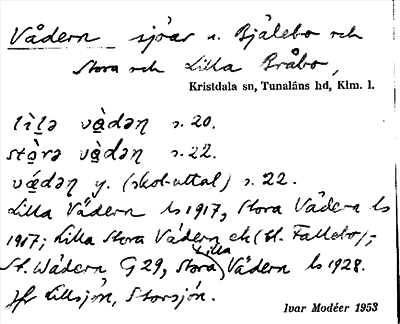 Vådern sjöar n. Bjälebo och
Stora och Lilla Bråbo,
Kristdala sn, Tunaläns hd, Klm. l.
lìlə và̀dəɳ s. 20.
stò̀rə và̀dəɳ s. 22.
vǽdəɳ y. (skol-uttal) s. 22.
Lilla Vådern ls 1917, Stora Vådern ls
1917; Lilla Stora Vådern ek (bl. Fallebo);
St. Wådern G 29, Stora Lilla Vådern ls 1928.
Jfr Lillsjön, Storsjön.
Ivar Modéer 1953